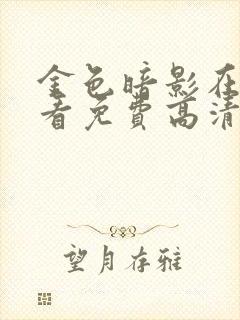 金色暗影在
看免费高清
望月存雅